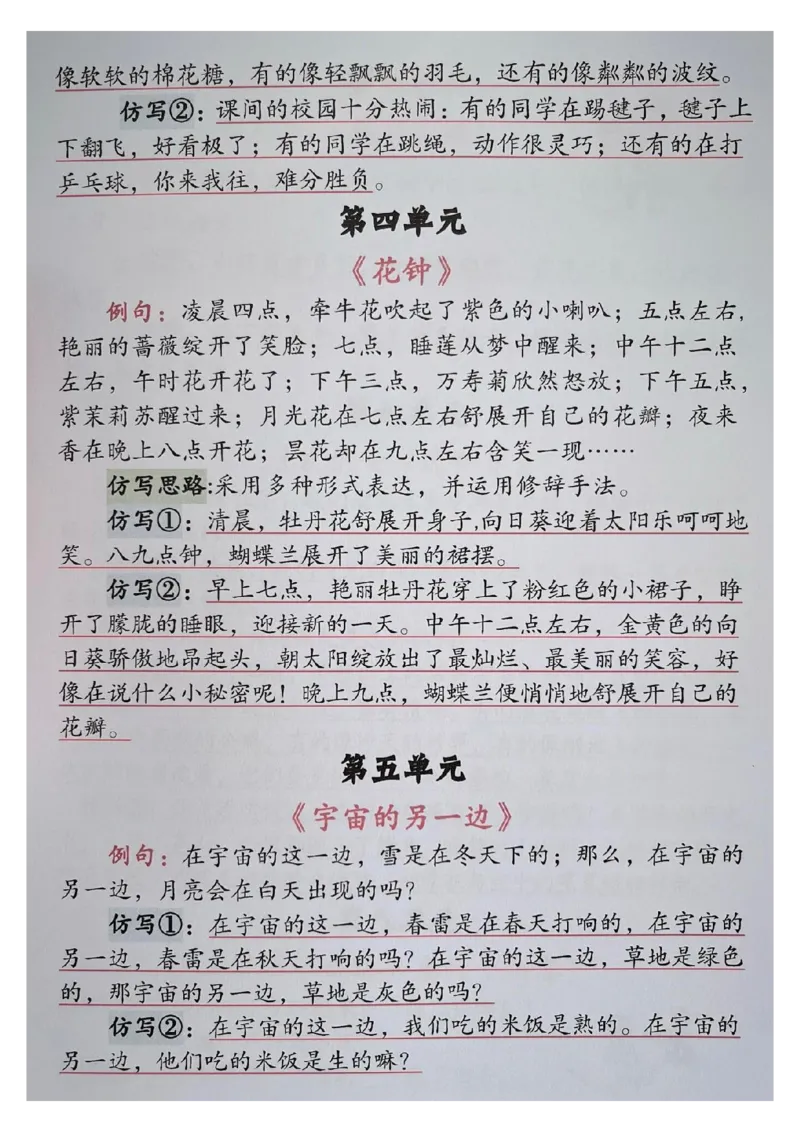 像软软的棉花糖，有的像轻飘飘的羽毛，还有的像粼粼的波纹。
仿写②：课间的校园十分热闹：有的同学在踢毽子，毽子上
下翻飞，好看极了；有的同学在跳绳，动作很灵巧；还有的在打
乒乓球，你来我往，难分胜负。
第四单元
《花钟》
例句：凌晨四点，牵牛花吹起了紫色的小喇叭；五点左右，
艳丽的蔷薇绽开了笑脸；七点，睡莲从梦中醒来；中午十二点
左右，午时花开花了；下午三点，万寿菊欣然怒放；下午五点，
紫茉莉苏醒过来；月光花在七点左右舒展开自己的花瓣；夜来
香在晚上八点开花；昙花却在九点左右含笑一现……
仿写思路:采用多种形式表达，并运用修辞手法。
仿写①：清晨，牡丹花舒展开身子,向日葵迎着太阳乐呵呵地
笑。八九点钟，蝴蝶兰展开了美丽的裙摆。
仿写②：早上七点，艳丽牡丹花穿上了粉红色的小裙子，睁
开了朦胧的睡眼，迎接新的一天。中午十二点左右，金黄色的向
日葵骄傲地昂起头，朝太阳绽放出了最灿烂、最美丽的笑容，好
像在说什么小秘密呢！晚上九点，蝴蝶兰便悄悄地舒展开自己的
花瓣。
第五单元
《宇宙的另一边》
例句：在宇宙的这一边，雪是在冬天下的；那么，在宇宙的
另一边，月亮会在白天出现的吗？
仿写①：在宇宙的这一边，春雷是在春天打响的，在宇宙的
另一边，春雷是在秋天打响的吗？在宇宙的这一边，草地是绿色
的，那宇宙的另一边，草地是灰色的吗？
仿写②：在宇宙的这一边，我们吃的米饭是熟的。在宇宙的
另一边，他们吃的米饭是生的嘛？